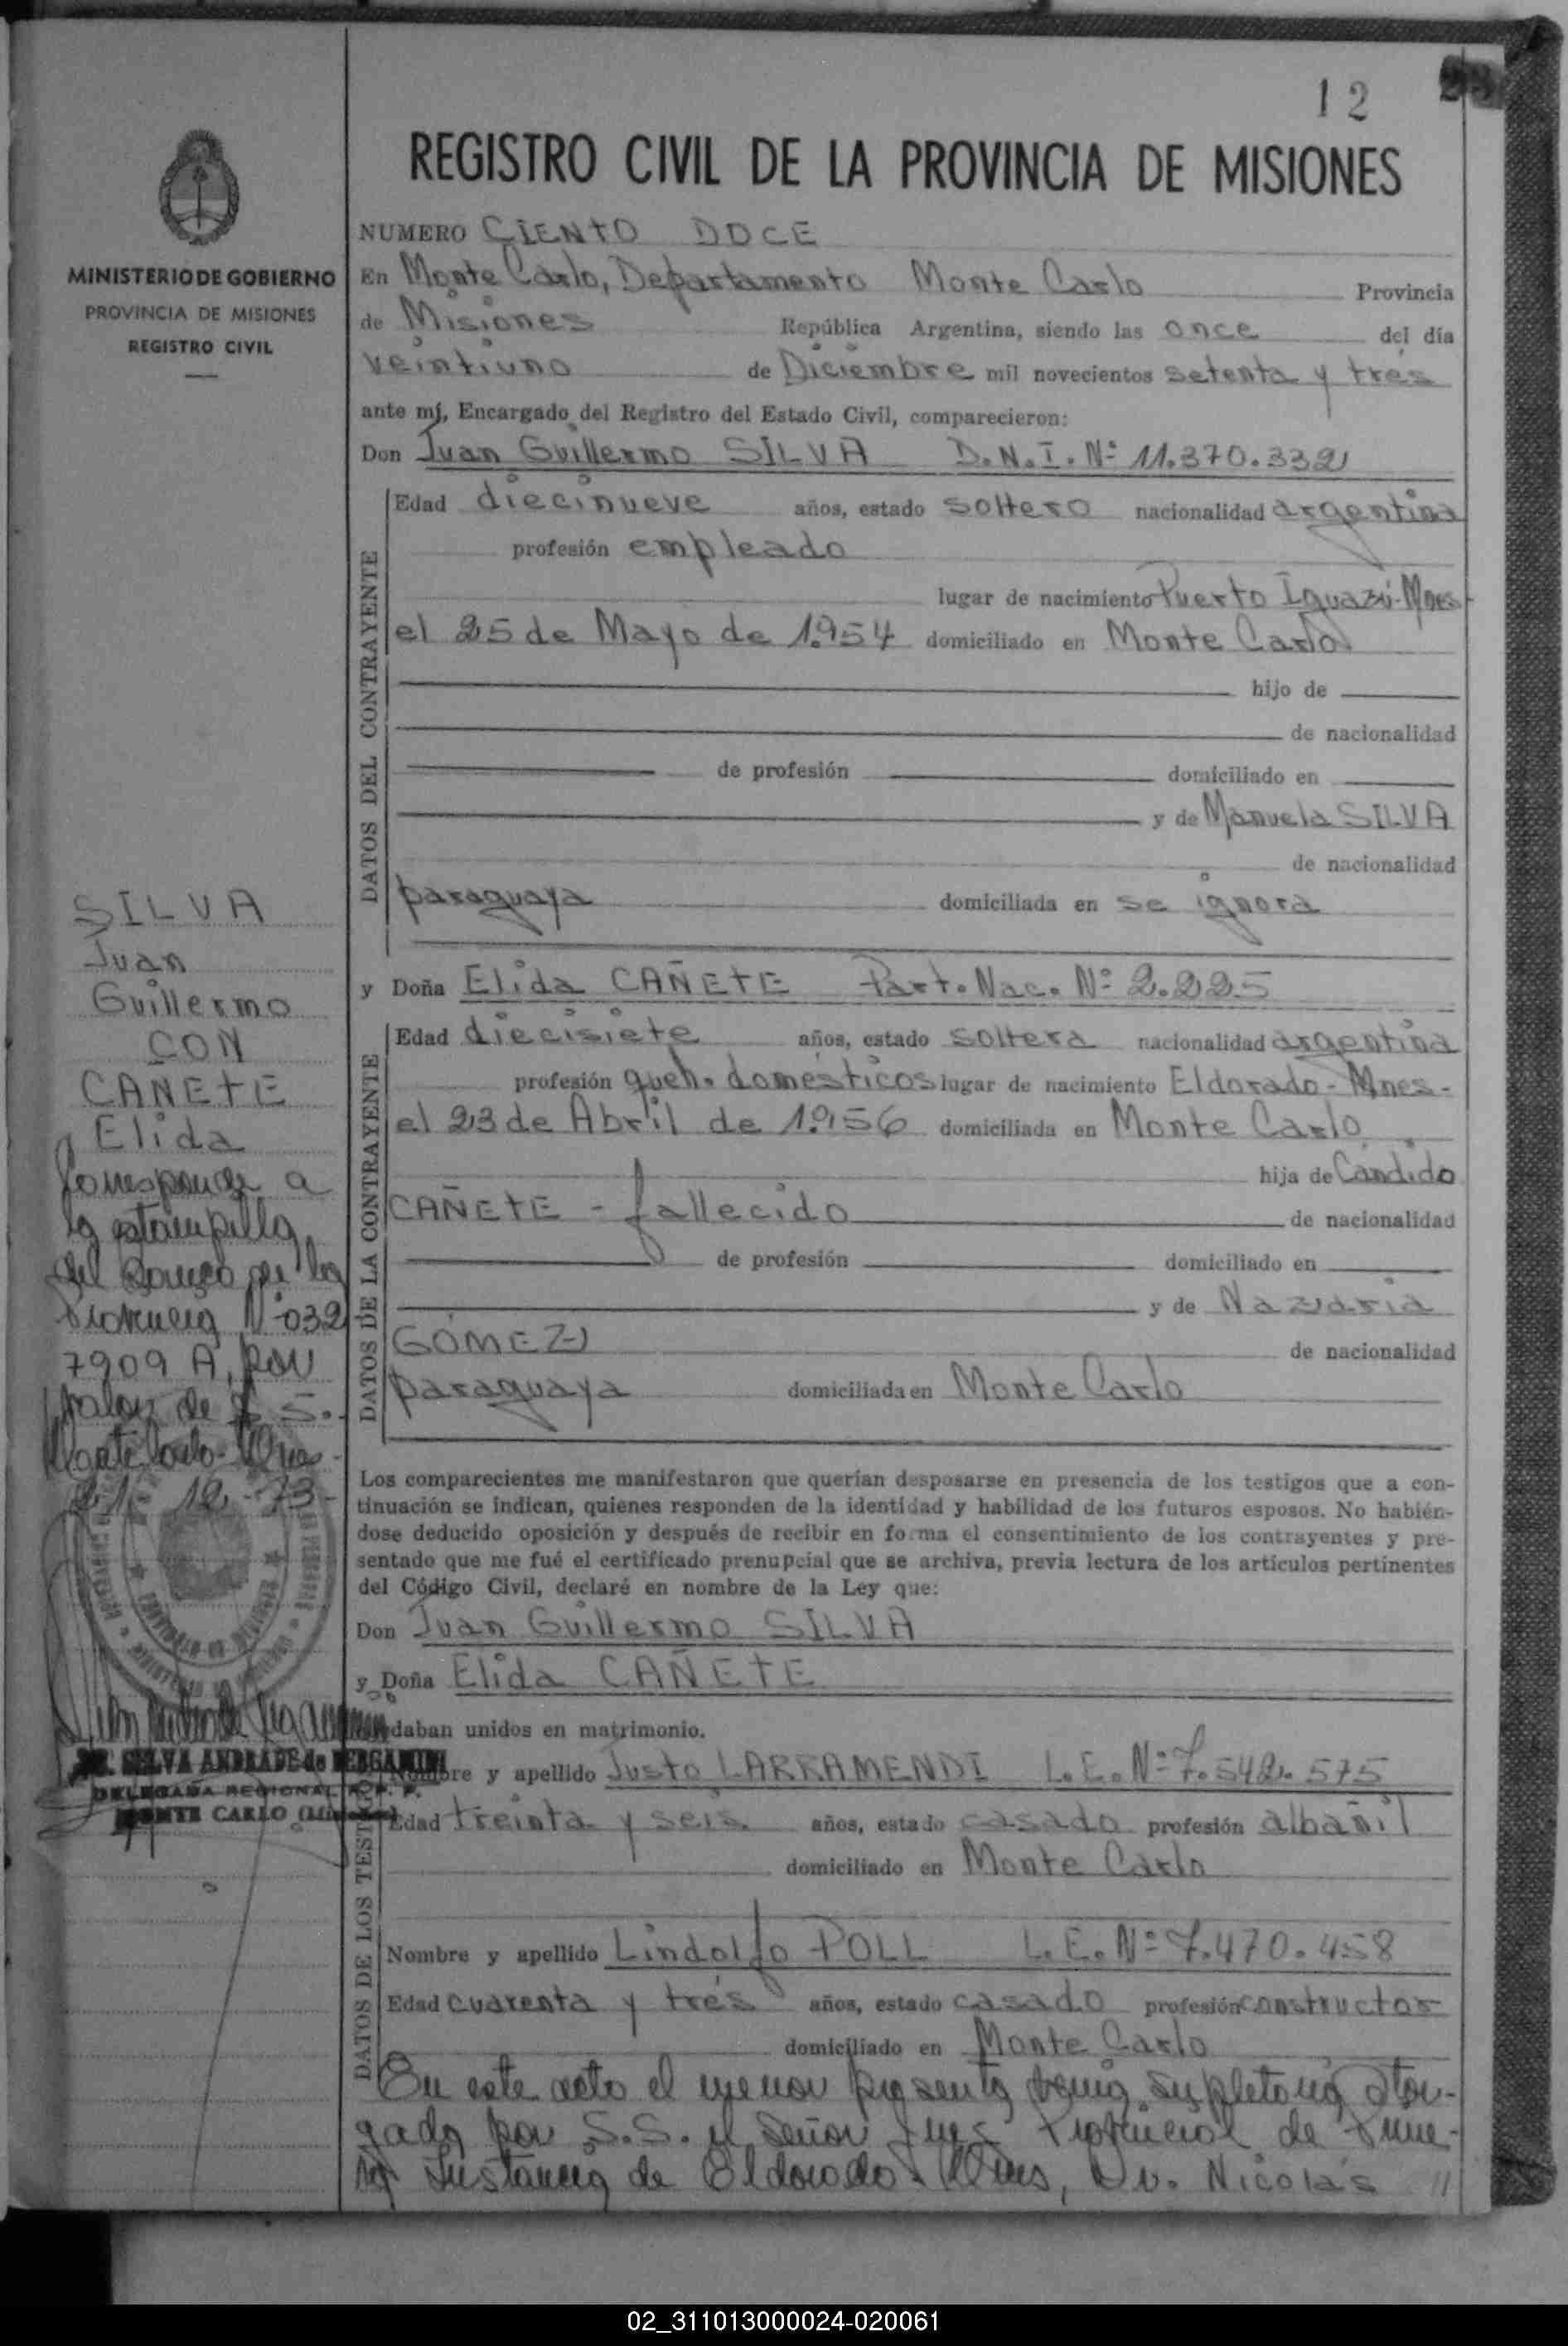 12
REGISTRO CIVIL DE LA PROVINCIA DE MISIONES
MINISTERIO DE GOBIERNO
PROVINCIA DE MISIONES
REGISTRO CIVIL
NUMERO CIENTO DOCE
En Monte Carlo, Departamento Monte Carlo Provincia
de Misiones República Argentina, siendo las once del día
veintiuno de Diciembre mil novecientos setenta y tres
ante mí, Encargado del Registro del Estado Civil, comparecieron:
Don Juan Guillermo SILVA D.N.I. Nº 11.370.332
DATOS DEL CONTRAYENTE
Edad diecinueve años, estado soltero nacionalidad argentina
profesión empleado
lugar de nacimiento Puerto Iguazú-Mnes
el 25 de Mayo de 1.954 domiciliado en Monte Carlo
hijo de
de nacionalidad
de profesión domiciliado en
y de Manuela SILVA
de nacionalidad
paraguaya domiciliada en se ignora
y Doña Elida CAÑETE Part. Nac. Nº 2.225
DATOS DE LA CONTRAYENTE
Edad diecisiete años, estado soltera nacionalidad argentina
profesión queh. domésticos lugar de nacimiento Eldorado-Mnes-
el 23 de Abril de 1.956 domiciliada en Monte Carlo
hija de Cándido
CAÑETE - fallecido de nacionalidad
de profesión domiciliado en
y de Nazaria
GÓMEZ de nacionalidad
paraguaya domiciliada en Monte Carlo
Los comparecientes me manifestaron que querían desposarse en presencia de los testigos que a con-
tinuación se indican, quienes responden de la identidad y habilidad de los futuros esposos. No habién-
dose deducido oposición y después de recibir en forma el consentimiento de los contrayentes y pre-
sentado que me fué el certificado prenupcial que se archiva, previa lectura de los artículos pertinentes
del Código Civil, declaré en nombre de la Ley que:
Don Juan Guillermo SILVA
y Doña Elida CAÑETE
daban unidos en matrimonio.
DATOS DE LOS TEST
Nombre y apellido Justo LARRAMENDI L.E. Nº 7.542.575
Edad treinta y seis años, estado casado profesión albañil
domiciliado en Monte Carlo
Nombre y apellido Lindolfo POLL L.E. Nº 7.470.458
Edad cuarenta y tres años, estado casado profesión constructor
domiciliado en Monte Carlo
En este acto el menor presenta venia supletoria otor-
gada por S.S. el Señor Juez Provincial de Prime-
ra Instancia de Eldorado-Mnes, Dr. Nicolás //
SILVA
Juan
Guillermo
CON
CAÑETE
Elida
Corresponde a
la estampilla
del Banco de la
Provincia Nº 032
7909 A, por
valor de $ 5.-
Monte Carlo-Mnes-
21-12-73-
SILVA ANDRADE de BERGAMINI
DELEGADA REGIONAL R. P. P.
MONTE CARLO
02_311013000024-020061